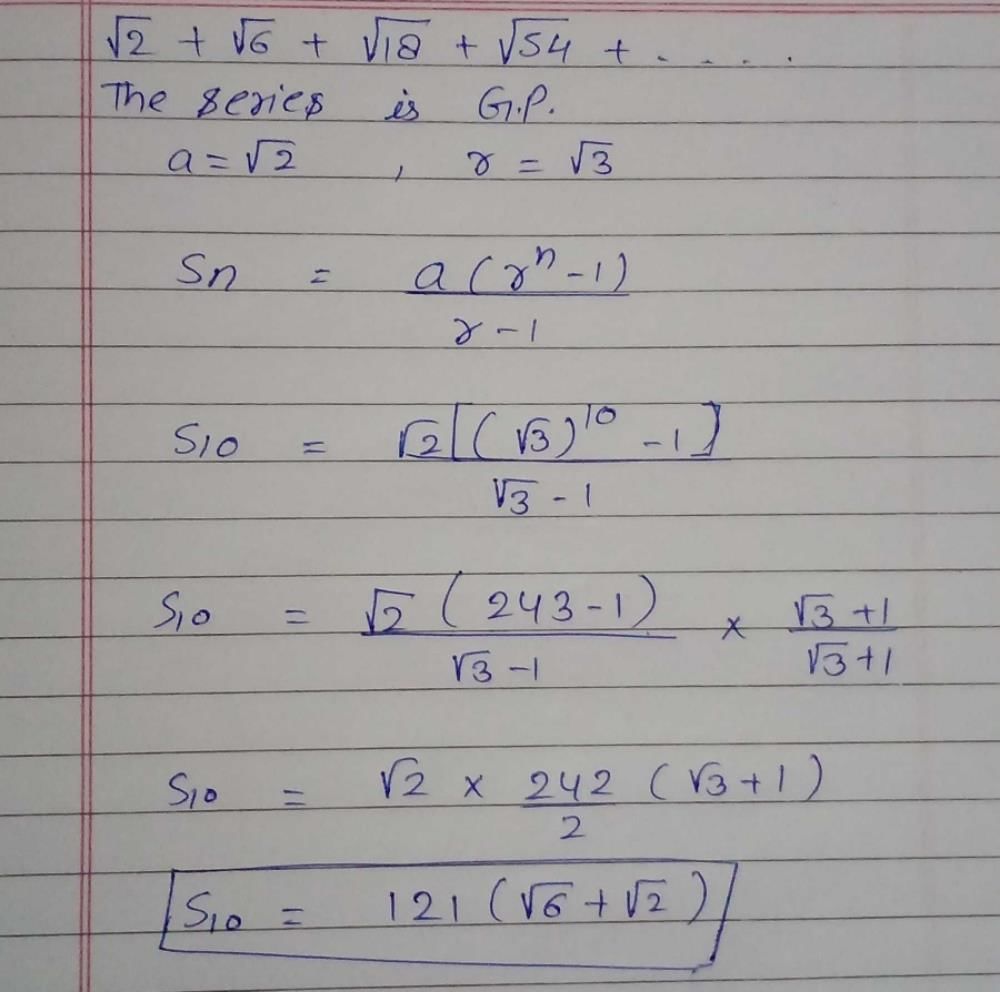 √2 + √6 + √18 + √54 + . . . . .
The series is G.P.
a = √2 , r = √3
Sn = a (rⁿ - 1)
r - 1
S10 = √2 [(√3)¹⁰ - 1]
√3 - 1
S10 = √2 (243 - 1) × √3 + 1
√3 - 1 √3 + 1
S10 = √2 × 242 (√3 + 1)
2
S10 = 121 (√6 + √2)